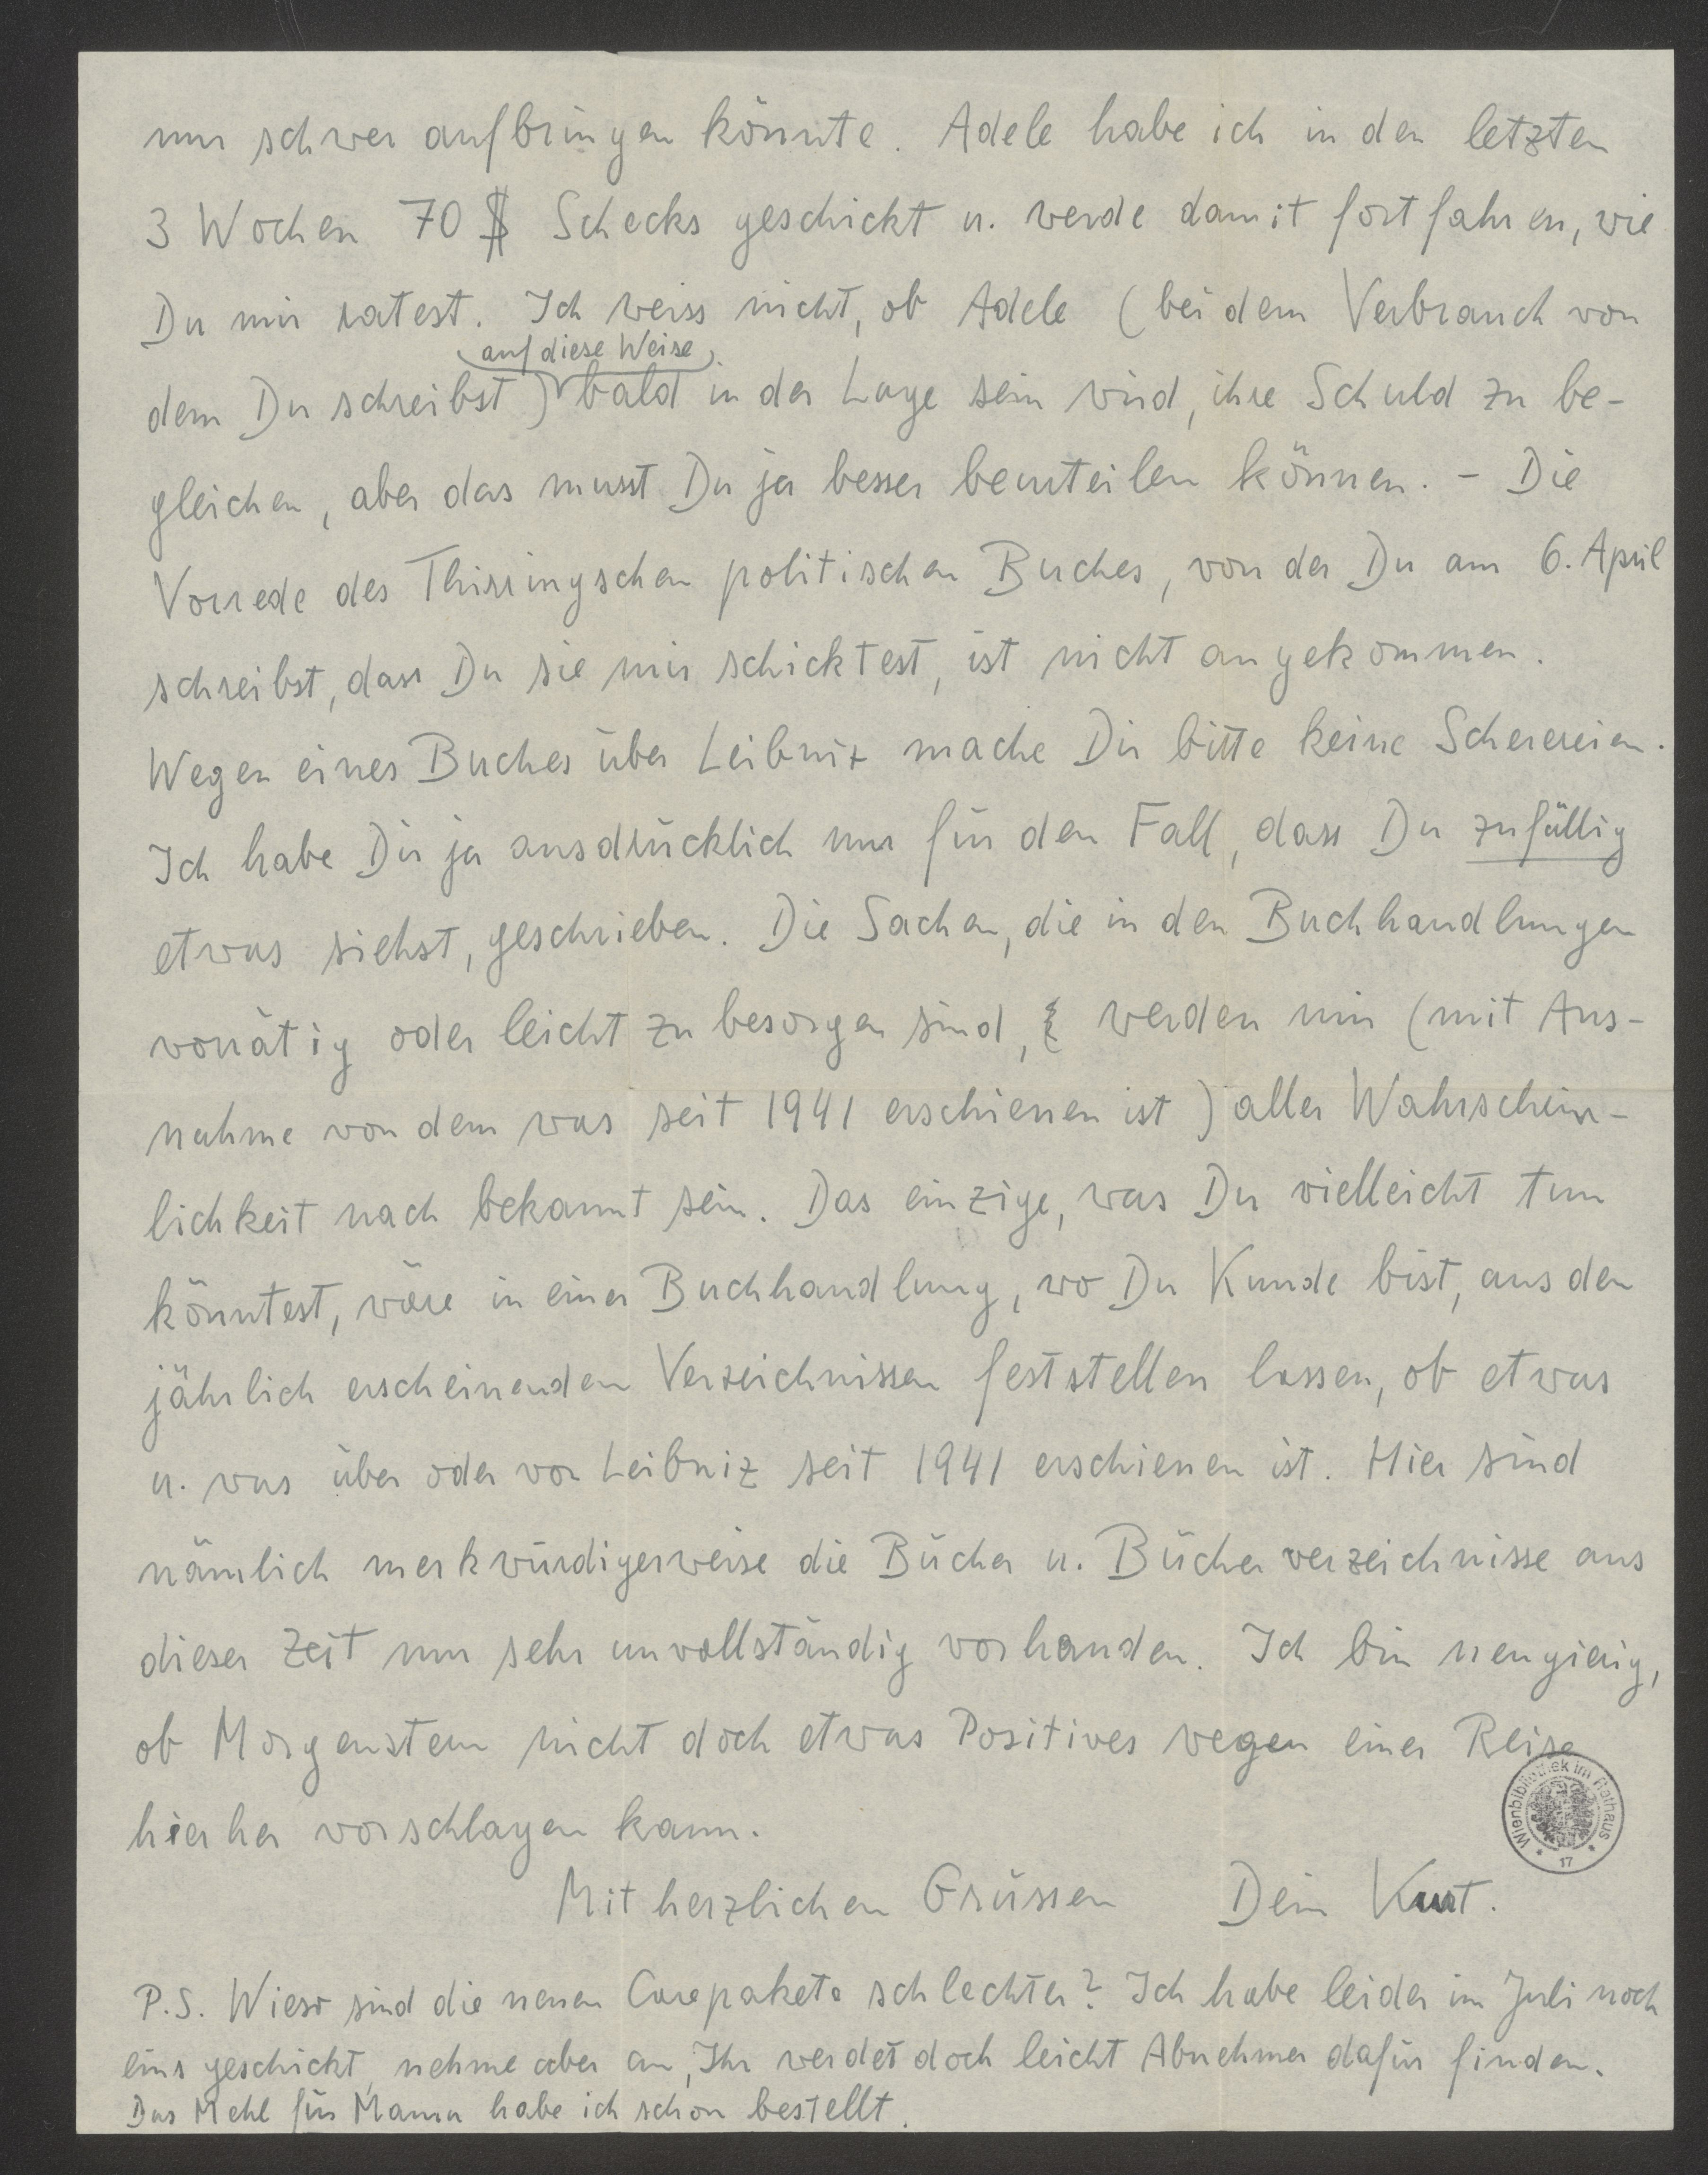 nur schwer aufbringen könnte. Adele habe ich in den letzten
3 Wochen 70 $ Schecks geschickt u. werde damit fortfahren, wie
Du mir ratest. Ich weiss nicht, ob Adele (bei dem Verbrauch von
auf diese Weise
dem Du schreibst) bald in der Lage sein wird, ihre Schuld zu be-
gleichen, aber das musst Du ja besser beurteilen können. – Die
Vorrede des Thirringschen politischen Buches, von der Du am 6. April
schreibst, dass Du sie mir schicktest, ist nicht angekommen.
Wegen eines Buches über Leibniz mache Dir bitte keine Scherereien.
Ich habe Dir ja ausdrücklich nur für den Fall, dass Du zufällig
etwas siehst, geschrieben. Die Sachen, die in den Buchhandlungen
vorrätig oder leicht zu besorgen sind, werden mir (mit Aus-
nahme von dem was seit 1941 erschienen ist) aller Wahrschein-
lichkeit nach bekannt sein. Das einzige, was Du vielleicht tun
könntest, wäre in einer Buchhandlung, wo Du Kunde bist, aus den
jährlich erscheinenden Verzeichnissen feststellen lassen, ob etwas
u. was über oder von Leibniz seit 1941 erschienen ist. Hier sind
nämlich merkwürdigerweise die Bücher u. Bücherverzeichnisse aus
dieser Zeit nur sehr unvollständig vorhanden. Ich bin neugierig,
ob Morgenstern nicht doch etwas Positives wegen einer Reise
hierher vorschlagen kann.
Mit herzlichen Grüssen Dein Kurt.
Wienbibliothek im Rathaus
* 17 *
P.S. Wieso sind die neuen Carepakete schlechter? Ich habe leider im Juli noch
eins geschickt, nehme aber an, Ihr werdet doch leicht Abnehmer dafür finden.
Das Mehl für Mama habe ich schon bestellt.